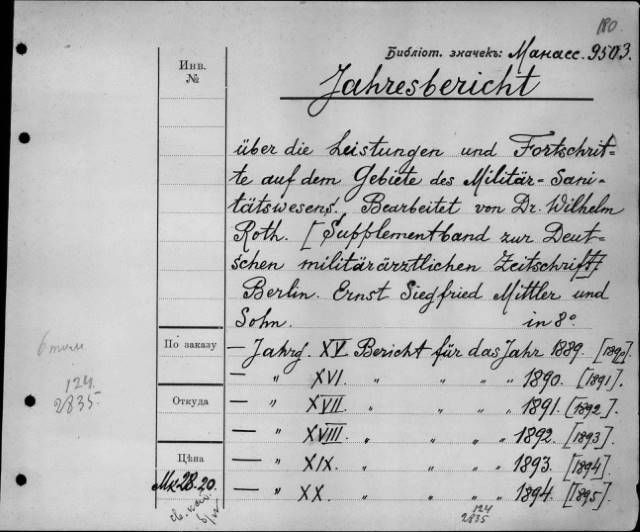 180.
Библіот. значекъ: Манасс. 9503.
Инв.
№
Jahresbericht
über die Leistungen und Fortschrit=
te auf dem Gebiete des Militär-Sani-
tätswesens. Bearbeitet von Dr. Wilhelm
Roth. [Supplementband zur Deut=
schen militärärztlichen Zeitschrift]
Berlin. Ernst Siegfried Mittler und
Sohn. in 8°
По заказу
— Jahrg. XV Bericht für das Jahr 1889. [1890].
— " XVI. " " " 1890. [1891].
— " XVII. " " " 1891. [1892].
— " XVIII. " " " 1892. [1893].
— " XIX. " " " 1893. [1894].
— " XX. " " " 1894. [1895].
6 том
124
2835.
Откуда
Цѣна
Мк 28.20.
124
2835